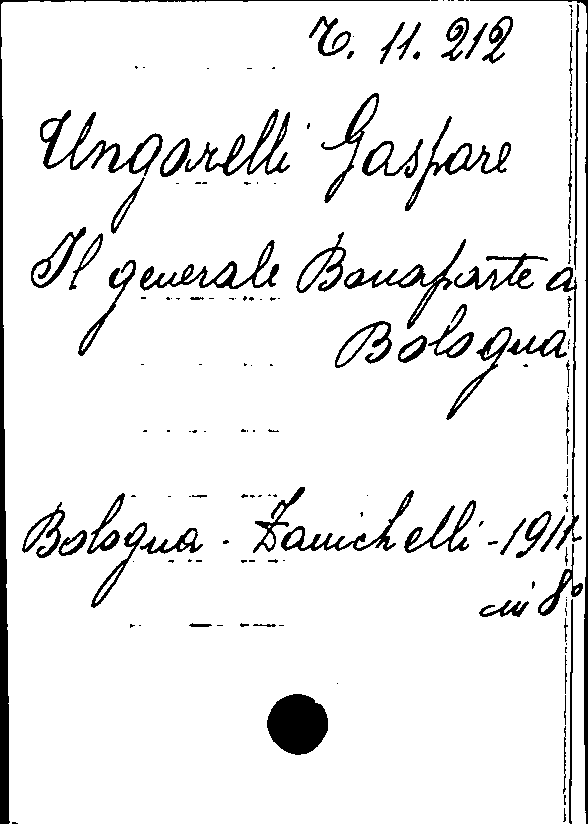 C. 11. 212
Ungarelli Gaspare
Il generale Bonaparte a
Bologna
Bologna - Zanichelli - 1911-
in 8°